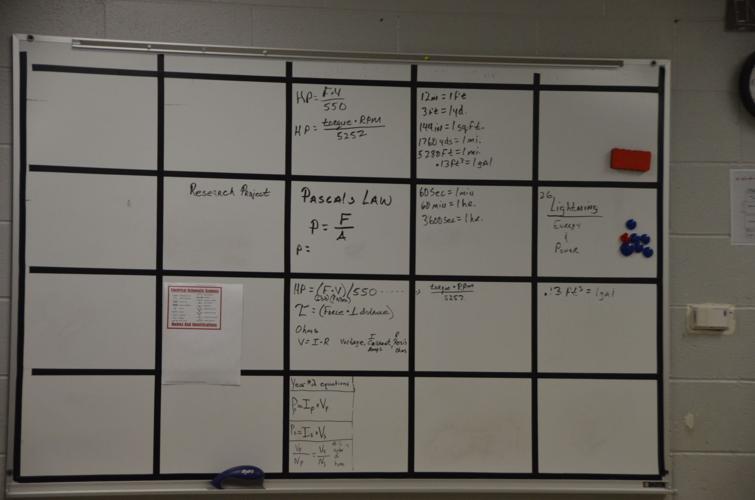 HP = F·V / 550
HP = torque · RPM / 5252
12in = 1ft
3ft = 1yd.
144in = 1sqft.
1760yds = 1mi.
5280ft = 1mi.
.13ft³ = 1gal
Research Project
PASCALS LAW
P = F / A
P =
60Sec = 1min
60min = 1hr.
3600sec = 1hr.
26
Lightning
Energy
&
Power
Electrical Schematic Symbols
Names And Identifications
HP = (F·V)/550
torque · RPM / 5252
τ = (Force · ⊥ distance)
Ohms
V = I·R Voltage, I Current, R
Amps Ohms
.13 ft³ = 1gal
Year #2 equations
Pp = Ip · Vp
Ps = Is · Vs
Vp / Np = Vs / Ns